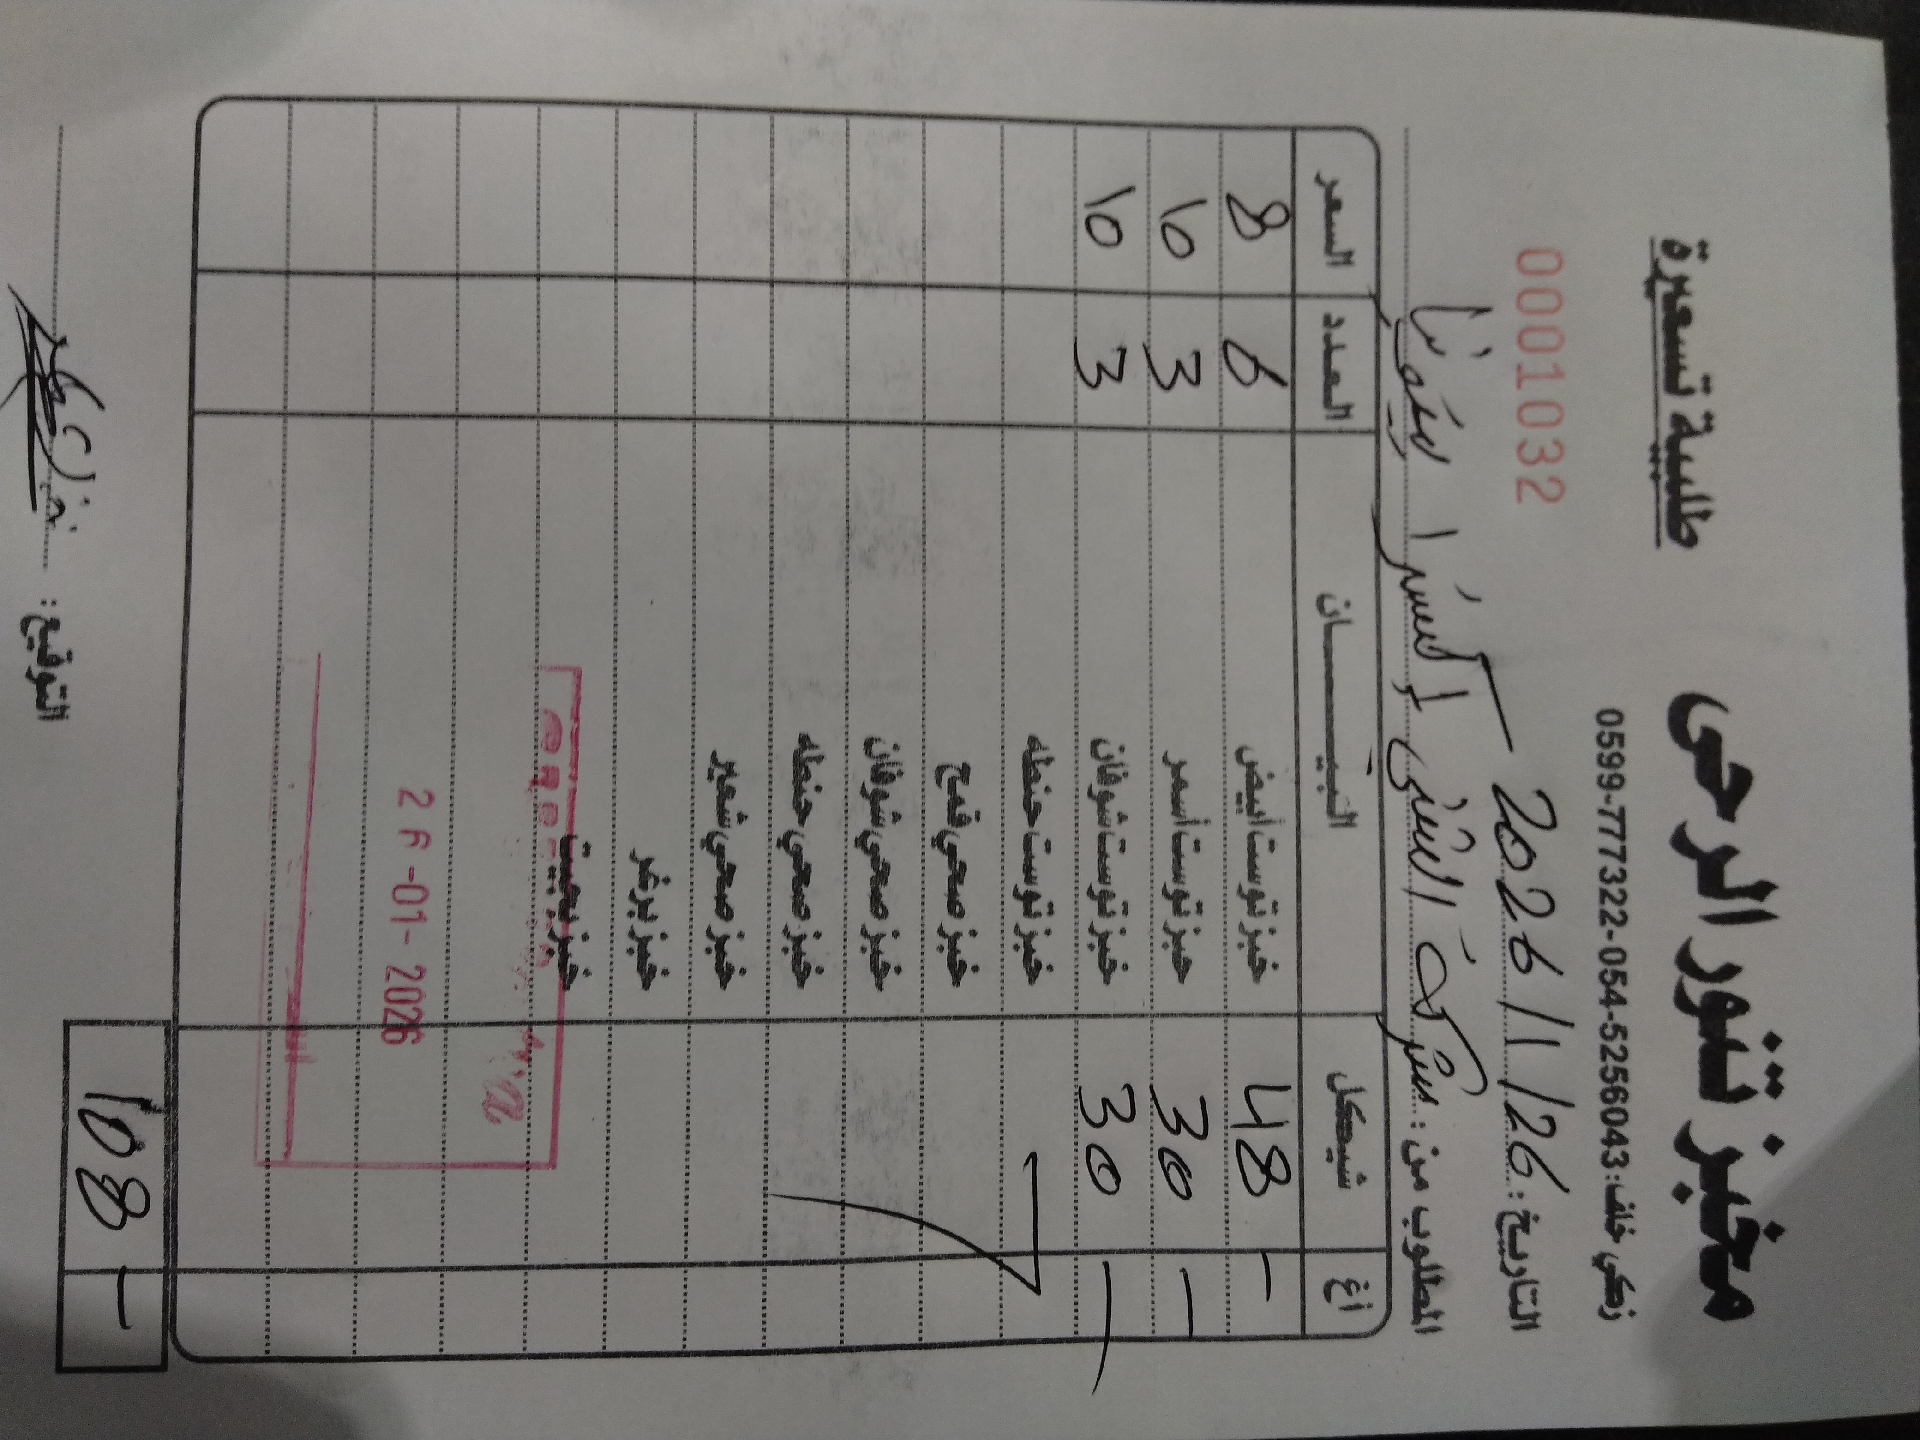 مخبز تنور الرحى
طلبية تسعيرة
زكي خلف: 0599-777322-054-5256043
التاريخ: 2026 / 1 / 26
0001032
المطلوب من: شركة
أغ شيكل البيــــــان العدد السعر
- 48 خبز توست أبيض 6 8
- 30 خبز توست أسمر 3 10
- 30 خبز توست شوفان 3 10
خبز توست حنطه
خبز صحي قمح
خبز صحي شوفان
خبز صحي حنطه
خبز صحي شعير
خبز برغر
خبز بحت
26-01-2026
108 -
التوقيع: